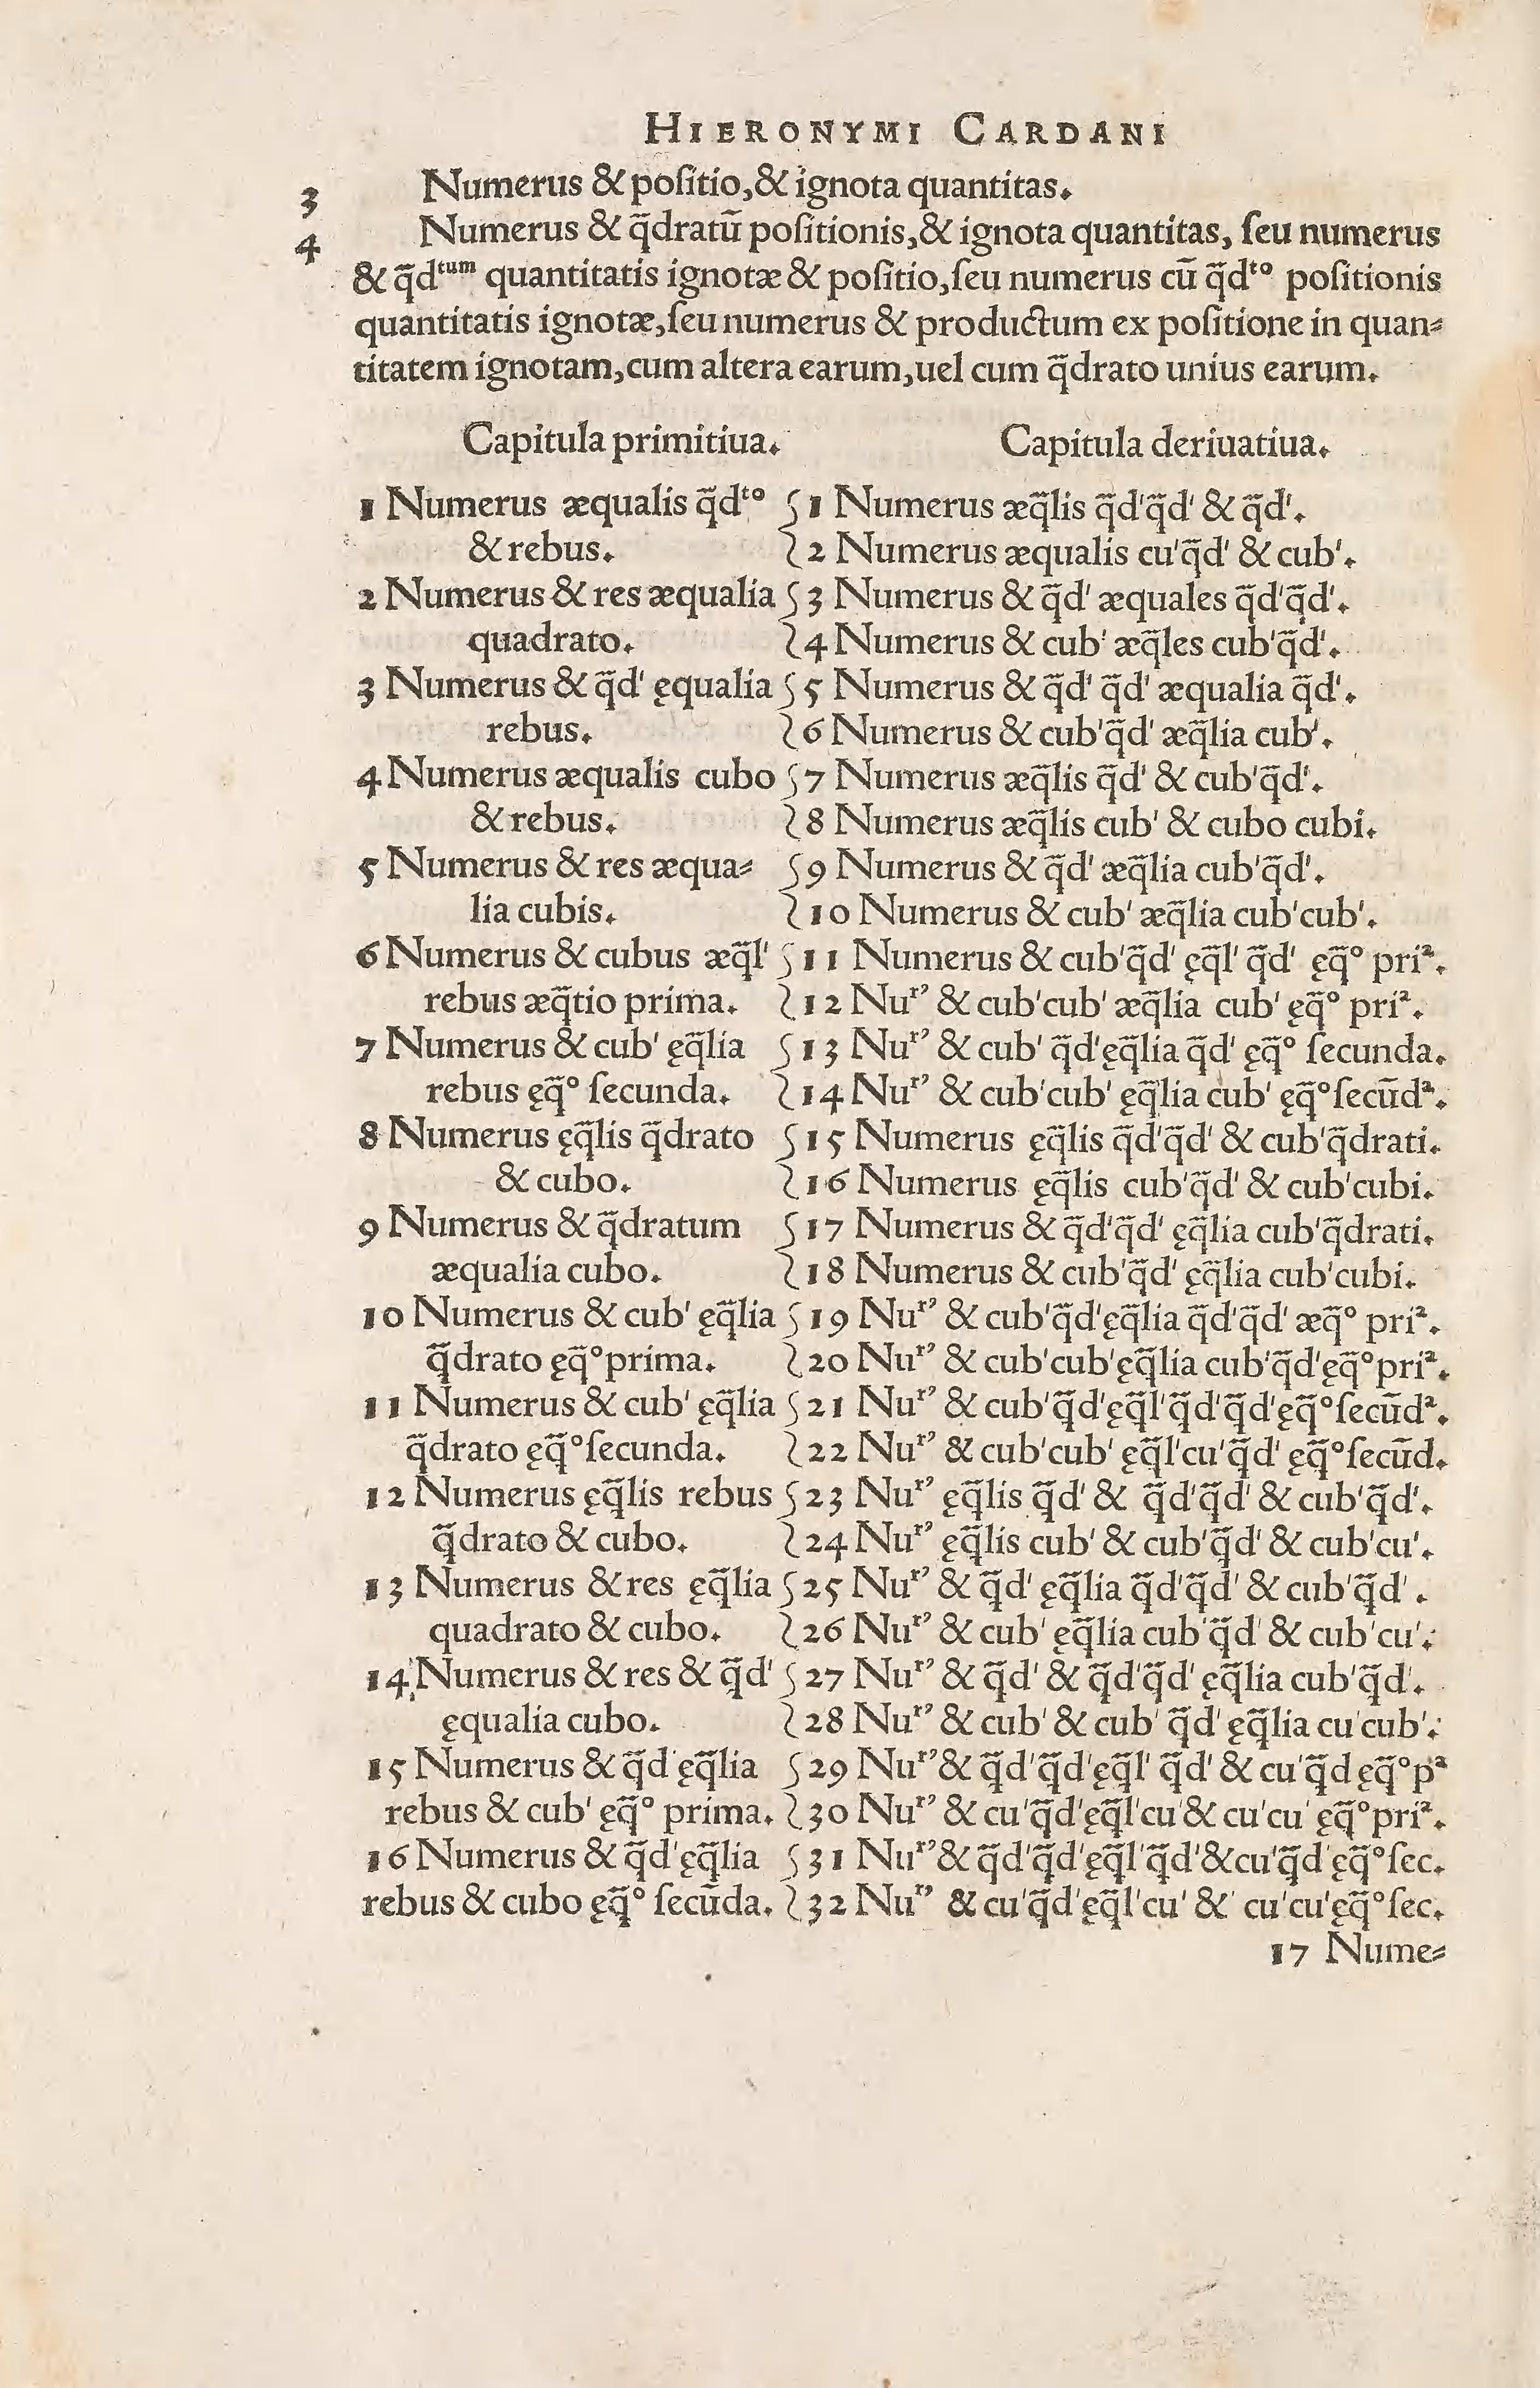 HIERONYMI CARDANI
3 Numerus & poſitio,& ignota quantitas.
4 Numerus & q̃dratũ poſitionis,& ignota quantitas, ſeu numerus
& q̃dᵗᵘᵐ quantitatis ignotæ & poſitio,ſeu numerus cũ q̃dᵗᵒ poſitionis
quantitatis ignotæ,ſeu numerus & productum ex poſitione in quan⸗
titatem ignotam,cum altera earum,uel cum q̃drato unius earum.
Capitula primitiua. Capitula deriuatiua.
1 Numerus æqualis q̃dᵗᵒ 1 Numerus æq̃lis q̃d'q̃d' & q̃d'.
& rebus. 2 Numerus æqualis cu'q̃d' & cub'.
2 Numerus & res æqualia 3 Numerus & q̃d' æquales q̃d'q̃d'.
quadrato. 4 Numerus & cub' æq̃les cub'q̃d'.
3 Numerus & q̃d' ęqualia 5 Numerus & q̃d' q̃d' æqualia q̃d'.
rebus. 6 Numerus & cub'q̃d' æq̃lia cub'.
4 Numerus æqualis cubo 7 Numerus æq̃lis q̃d' & cub'q̃d'.
& rebus. 8 Numerus æq̃lis cub' & cubo cubi.
5 Numerus & res æqua⸗ 9 Numerus & q̃d' æq̃lia cub'q̃d'.
lia cubis. 10 Numerus & cub' æq̃lia cub'cub'.
6 Numerus & cubus æq̃l' 11 Numerus & cub'q̃d' ęq̃l' q̃d' ęq̃° priᵃ.
rebus æq̃tio prima. 12 Nuʳ' & cub'cub' æq̃lia cub' ęq̃° priᵃ.
7 Numerus & cub' ęq̃lia 13 Nuʳ' & cub' q̃d'ęq̃lia q̃d' ęq̃° ſecunda.
rebus ęq̃° ſecunda. 14 Nuʳ' & cub'cub' ęq̃lia cub' ęq̃°ſecũdᵃ.
8 Numerus ęq̃lis q̃drato 15 Numerus ęq̃lis q̃d'q̃d' & cub'q̃drati.
& cubo. 16 Numerus ęq̃lis cub'q̃d' & cub'cubi.
9 Numerus & q̃dratum 17 Numerus & q̃d'q̃d' ęq̃lia cub'q̃drati.
æqualia cubo. 18 Numerus & cub'q̃d' ęq̃lia cub'cubi.
10 Numerus & cub' ęq̃lia 19 Nuʳ' & cub'q̃d'ęq̃lia q̃d'q̃d' æq̃° priᵃ.
q̃drato ęq̃°prima. 20 Nuʳ' & cub'cub'ęq̃lia cub'q̃d'ęq̃°priᵃ.
11 Numerus & cub' ęq̃lia 21 Nuʳ' & cub'q̃d'ęq̃l'q̃d'q̃d'ęq̃°ſecũdᵃ.
q̃drato ęq̃°ſecunda. 22 Nuʳ' & cub'cub' ęq̃l'cu'q̃d' ęq̃°ſecũd.
12 Numerus ęq̃lis rebus 23 Nuʳ' ęq̃lis q̃d' & q̃d'q̃d' & cub'q̃d'.
q̃drato & cubo. 24 Nuʳ' ęq̃lis cub' & cub'q̃d' & cub'cu'.
13 Numerus & res ęq̃lia 25 Nuʳ' & q̃d' ęq̃lia q̃d'q̃d' & cub'q̃d'.
quadrato & cubo. 26 Nuʳ' & cub' ęq̃lia cub'q̃d' & cub'cu'.
14 Numerus & res & q̃d' 27 Nuʳ' & q̃d' & q̃d'q̃d' ęq̃lia cub'q̃d'.
ęqualia cubo. 28 Nuʳ' & cub' & cub' q̃d' ęq̃lia cu'cub'.
15 Numerus & q̃d'ęq̃lia 29 Nuʳ'& q̃d'q̃d'ęq̃l' q̃d' & cu'q̃d ęq̃°pᵃ
rebus & cub' ęq̃° prima. 30 Nuʳ' & cu'q̃d'ęq̃l'cu'& cu'cu' ęq̃°priᵃ.
16 Numerus & q̃d'ęq̃lia 31 Nuʳ'& q̃d'q̃d'ęq̃l'q̃d'&cu'q̃d'ęq̃°ſec.
rebus & cubo ęq̃° ſecũda. 32 Nuʳ' & cu'q̃d'ęq̃l'cu' & cu'cu'ęq̃°ſec.
17 Nume⸗